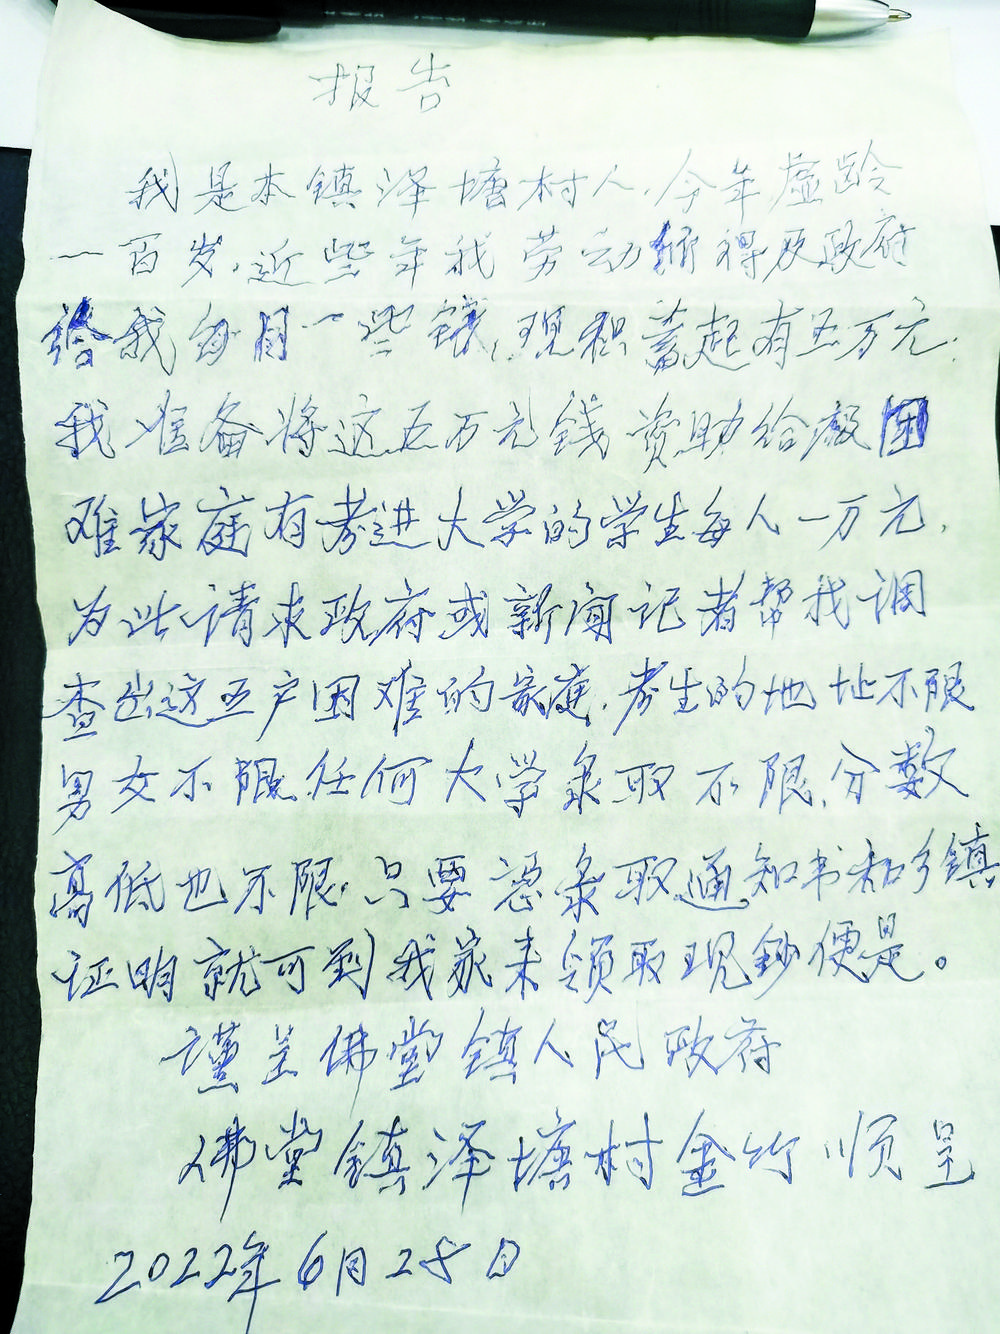 报告
我是本镇泽塘村人.今年虚龄
一百岁.近些年我劳动所得及政府
给我每月一些钱,现积蓄起有五万元.
我准备将这五万元钱资助给贫困
难家庭有考进大学的学生每人一万元.
为此请求政府或新闻记者帮我调
查出这五户困难的家庭.考生的地址不限
男女不限.任何大学录取不限.分数
高低也不限.只要凭录取通知书和乡镇
证明就可到我家来领取现钞便是。
谨呈佛堂镇人民政府
佛堂镇泽塘村金竹顺呈
2022年6月28日